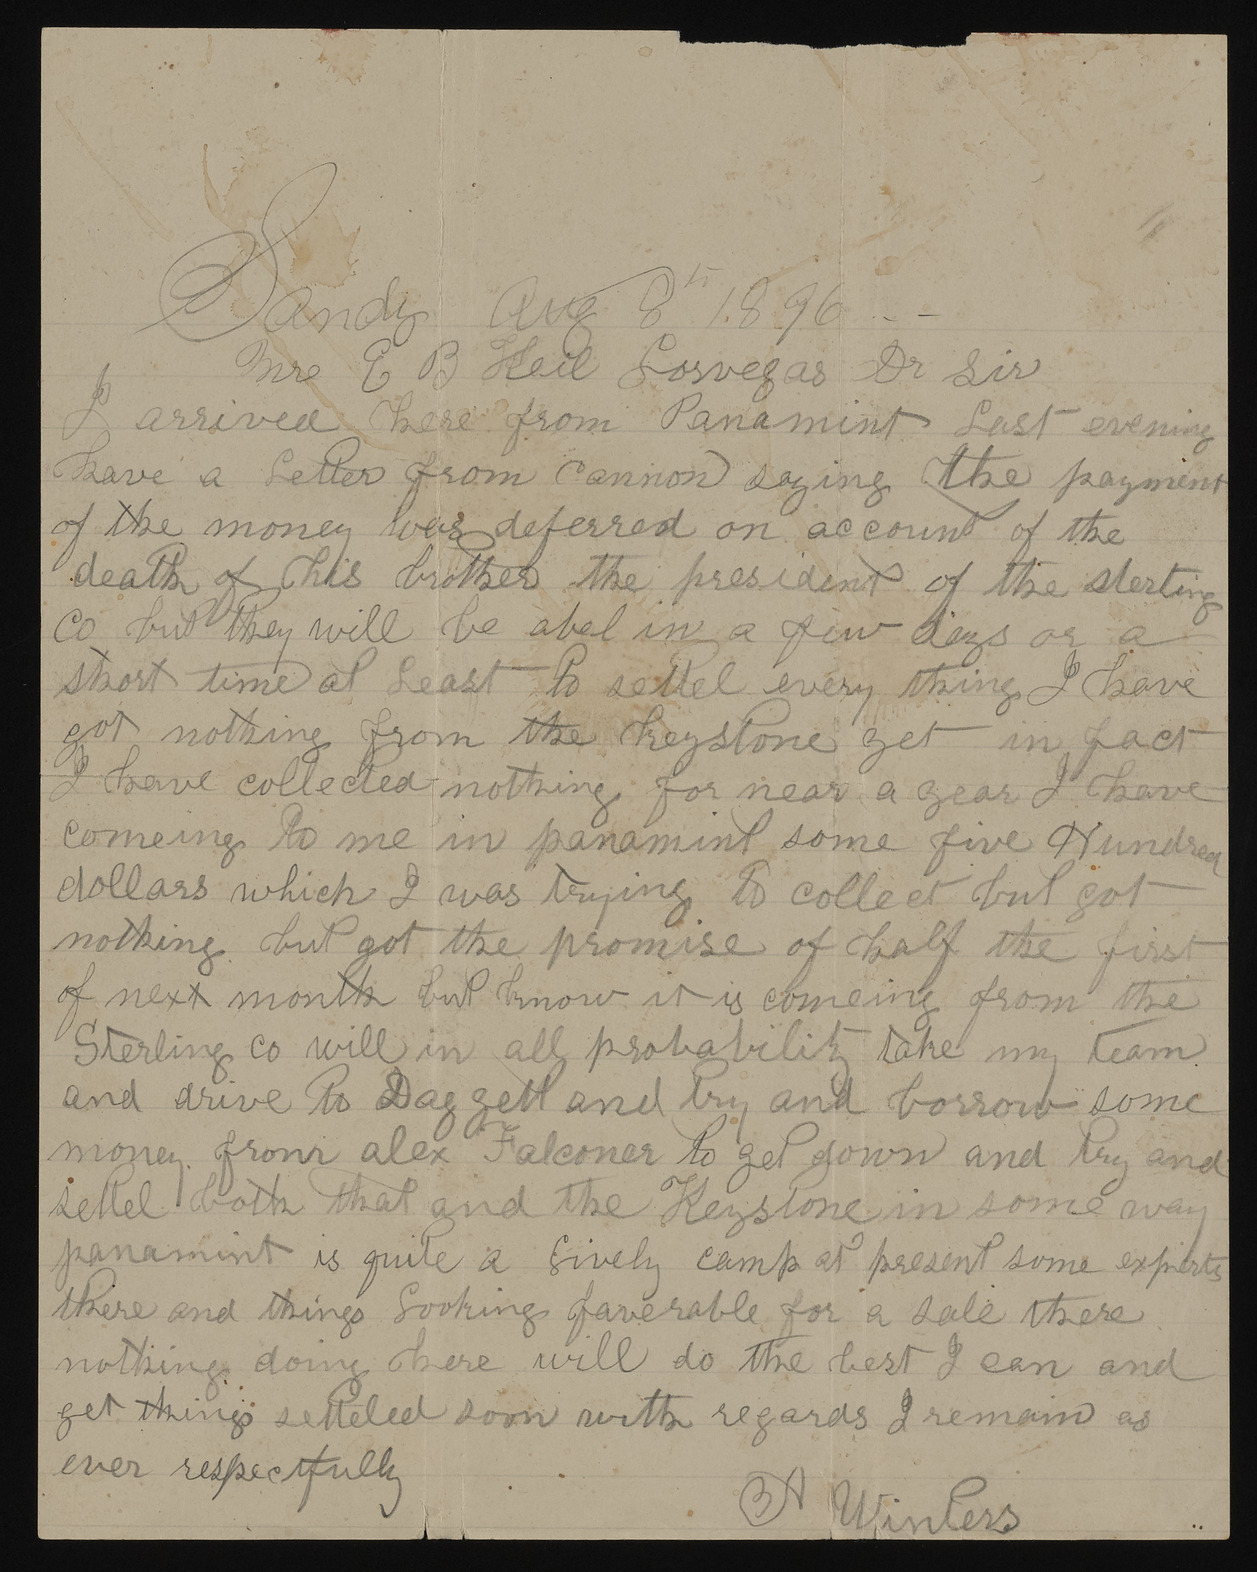 Sandy Aug 8th 1896 --
Mre E B Keil Losvegas Dr Sir
I arrived here from Panamint Last evening
have a Letter from Cannon saying the payment
of the money was deferred on account of the
death of his brother the president of the sterting
Co but they will be abel in a few days or a
short time at Least to settel every thing I have
got nothing from the keystone yet in fact
I have collected nothing for near a year I have
comeing to me in panamint some five Hundred
dollars which I was trying to collect but got
nothing but got the promise of half the first
of next month but know it is comeing from the
Sterling co will in all probability take my team
and drive to Daggett and try and borrow some
money from alex Falconer to get down and try and
settel both that and the Keystone in some way
panamint is quite a Lively camp at present some experts
there and things Looking faverable for a sale there
nothing doing here will do the best I can and
get things setteled soon with regards I remain as
ever respectfully
A Winters